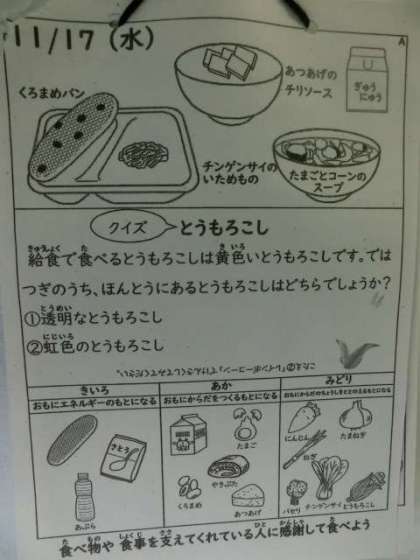 11/17（水）
A
くろまめパン
あつあげの
チリソース
ぎゅう
にゅう
チンゲンサイの
いためもの
たまごとコーンの
スープ
クイズ
とうもろこし
きゅうしょく た きいろ
給食で食べるとうもろこしは黄色いとうもろこしです。では
つぎのうち、ほんとうにあるとうもろこしはどちらでしょうか？
とうめい
①透明なとうもろこし
にじいろ
②虹色のとうもろこし
きいろ
おもにエネルギーのもとになる
さとう
あぶら
あか
おもにからだをつくるもとになる
たまご
やきぶた
くろまめ
あつあげ
みどり
おもにからだのちょうしをととのえるもとになる
にんじん
たまねぎ
ねぎ
パセリ
チンゲンサイ
とうもろこし
た もの しょくじ ささ ひと かんしゃ た
食べ物や食事を支えてくれている人に感謝して食べよう